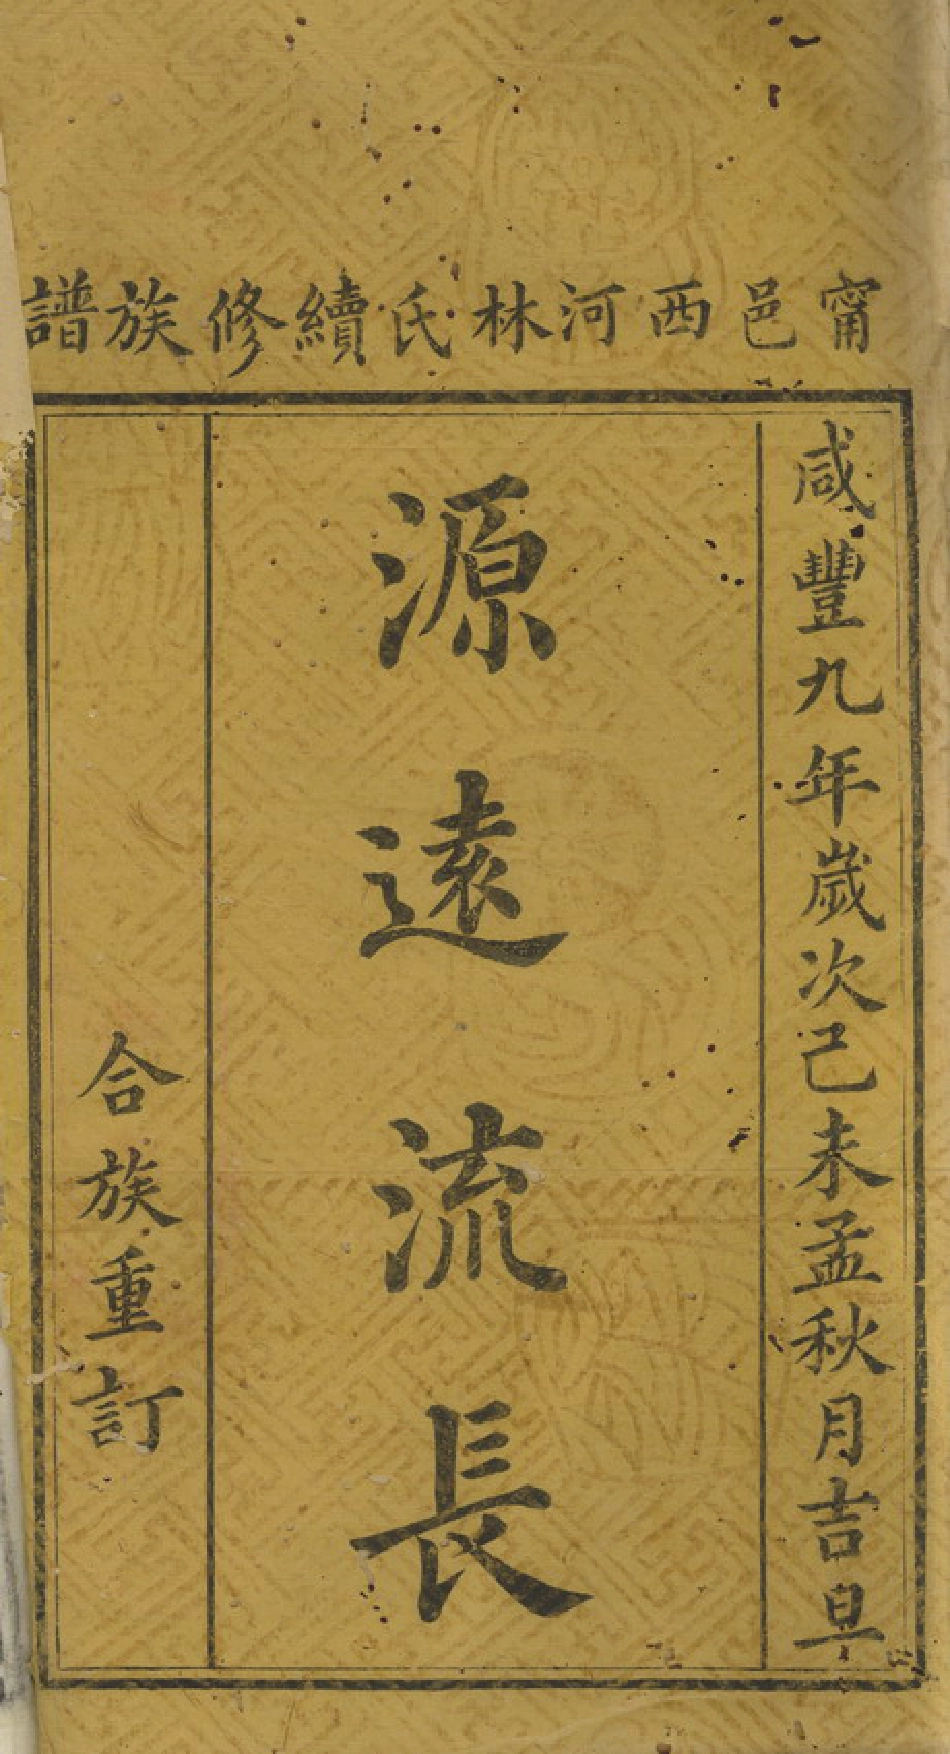 甯邑西河林氏續修族譜
咸豐九年歲次己未孟秋月吉旦
源遠流長
合族重訂